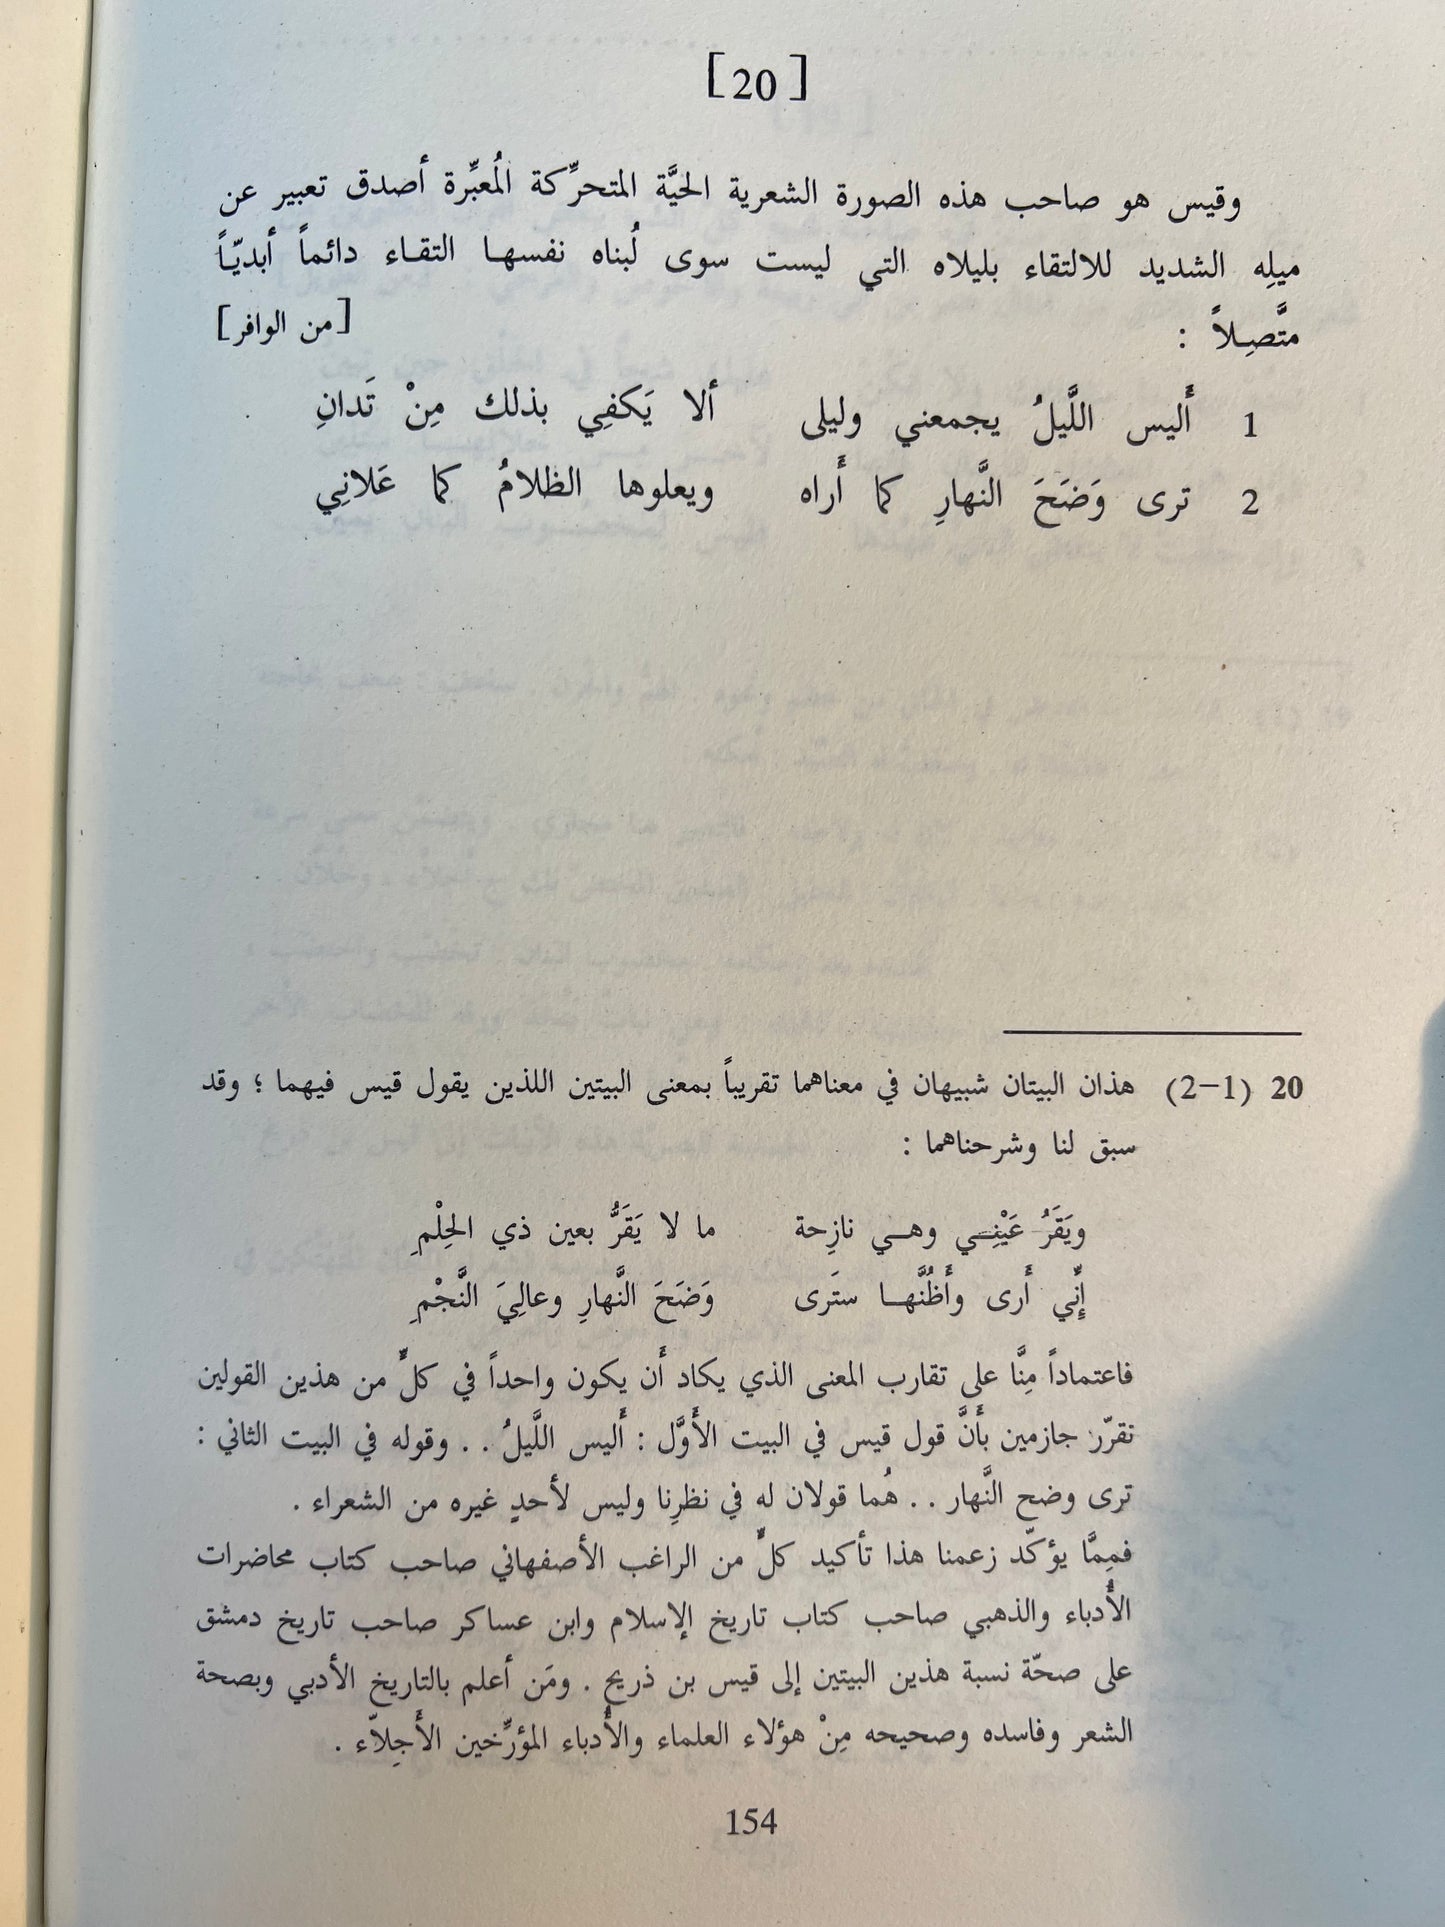 [20]
وقيس هو صاحب هذه الصورة الشعرية الحيَّة المتحرِّكة المُعبِّرة أصدق تعبير عن
ميلِه الشديد للالتقاء بليلاه التي ليست سوى لُبناه نفسها التقاء دائماً أبديّاً
متَّصِلاً : [من الوافر]
1 أَليس اللَّيلُ يجمعني وليلى ألا يَكفِي بذلك مِنْ تَدانِ
2 ترى وَضَحَ النَّهارِ كما أَراه ويعلوها الظلامُ كما عَلانِي
20 (1–2) هذان البيتان شبيهان في معناهما تقريباً بمعنى البيتين اللذين يقول قيس فيهما ؛ وقد
سبق لنا وشرحناهما :
ويَقَرُ عَيْنِي وهي نازِحة ما لا يَقَرُّ بعين ذي الحِلْمِ
إنِّي أَرى وأَظُنَّها ستَرى وَضَحَ النَّهارِ وعالِيَ النَّجْمِ
فاعتماداً مِنَّا على تقارب المعنى الذي يكاد أَن يكون واحداً في كلٍّ من هذين القولين
نقرّر جازمين بأَنَّ قول قيس في البيت الأَوَّل : أَليس اللَّيلُ . . وقوله في البيت الثاني :
ترى وضح النَّهار . . هُما قولان له في نظرِنا وليس لأحدٍ غيره من الشعراء .
فمِمَّا يؤكّد زعمنا هذا تأكيد كلٍّ من الراغب الأصفهاني صاحب كتاب محاضرات
الأُدباء والذهبي صاحب كتاب تاريخ الإسلام وابن عساكر صاحب تاريخ دمشق
على صحّة نسبة هذين البيتين إلى قيس بن ذريح . ومَن أعلم بالتاريخ الأدبي وبصحة
الشعر وفاسده وصحيحه مِنْ هؤلاء العلماء والأُدباء المؤرِّخين الأَجِلاّء .
154